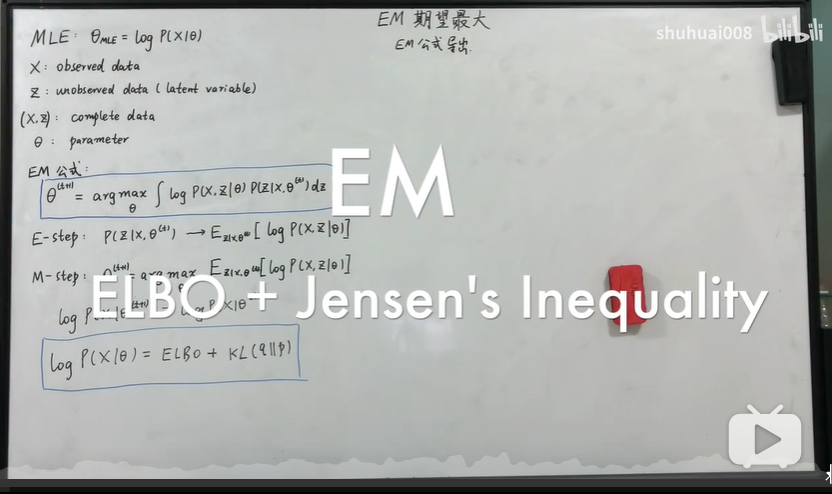 EM 期望最大
EM 公式导出
shuhuai008 bilibili
MLE: θ_MLE = log P(X|θ)
X: observed data
Z: unobserved data (latent variable)
(X,Z): complete data
θ: parameter
EM 公式:
θ^(t+1) = arg max_θ ∫ log P(X,Z|θ) P(Z|X,θ^(t)) dz
E-step: P(Z|X,θ^(t)) → E_z|x,θ^(t) [log P(X,Z|θ)]
M-step: E_z|x,θ^(t) [log P(X,Z|θ)]
log P(X|θ) = ELBO + KL(q||p)
EM
ELBO + Jensen's Inequality